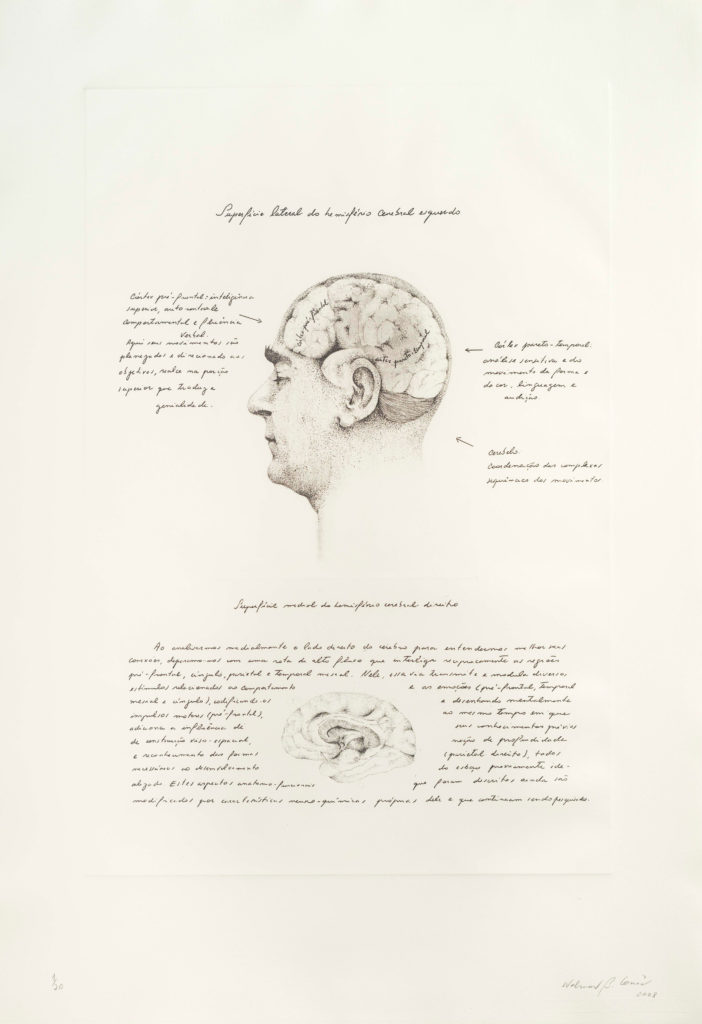 Superfície lateral do hemisfério cerebral esquerdo
Córtex pré-frontal: inteligência
superior, auto controle
comportamental e fluência
verbal.
Aqui seus movimentos são
planejados e direcionado aos
objetivos, realce na porção
superior que traduz a
genialidade.
córtex pré-frontal
córtex parieto-temporal
Córtex parieto-temporal:
análise sensitiva e do
movimento da forma e
da cor, linguagem e
audição.
Cerebelo
Coordenação das complexas
sequências dos movimentos
Superfície medial do hemisfério cerebral direito
Ao analisarmos medialmente o lado direito do cérebro para entendermos melhor suas
conexões, deparamo-nos com uma rota de alto fluxo que interliga reciprocamente as regiões
pré-frontal, cíngulo, parietal e temporal mesial. Nele, essa via transmite e modula diversos
estímulos relacionados ao comportamento e as emoções (pré-frontal, temporal
mesial e cíngulo), codificando os e desenhando mentalmente
impulsos motores (pré-frontal), ao mesmo tempo em que
adiciona a influência de seus conhecimentos prévios
de construção viso-espacial, noção de profundidade
e reconhecimento das formas (parietal direito), todos
necessários ao desenvolvimento do esboço previamente ide-
alizado. Estes aspectos anatomo-funcionais que foram descritos ainda são
modificados por características neuro-químicas próprias dele e que continuam sendo pesquisadas.
1/20
2008